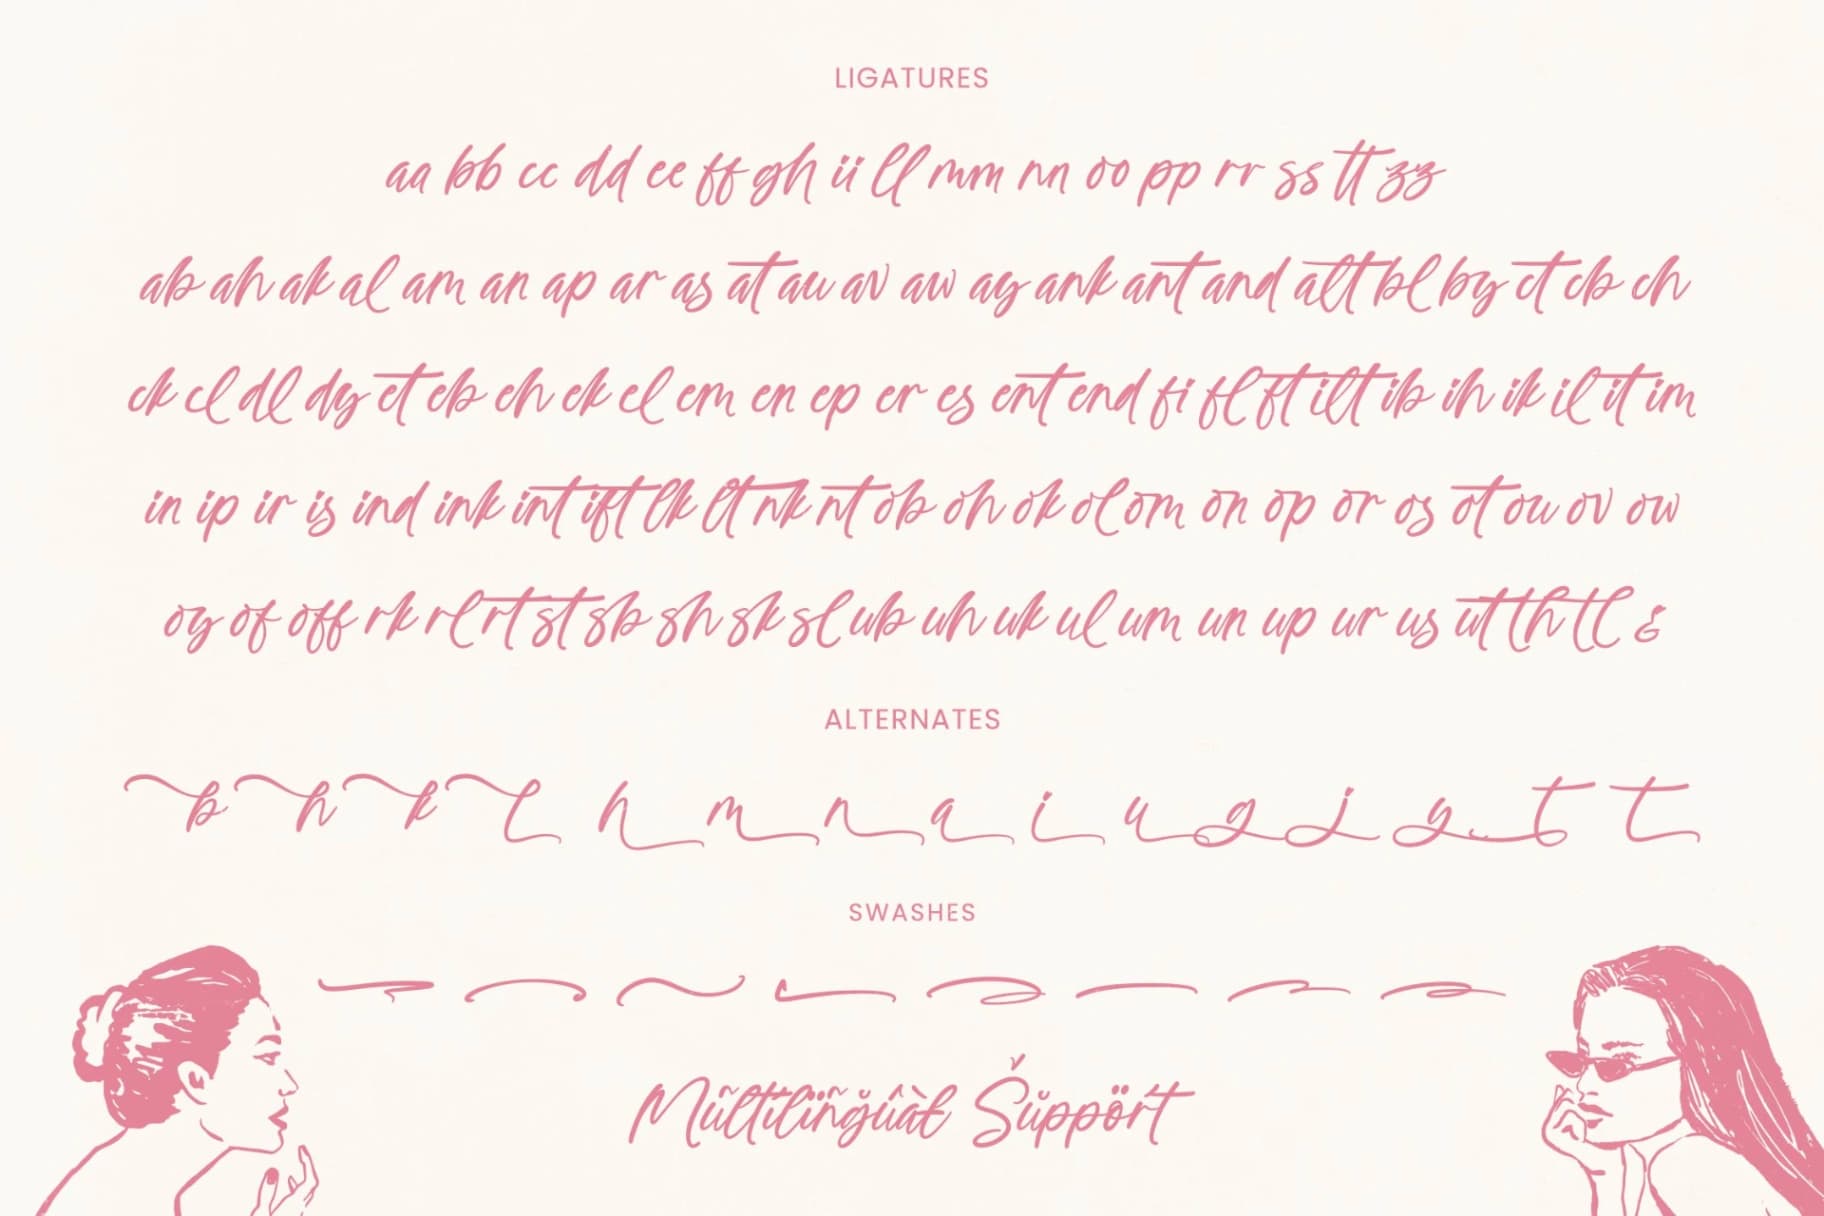 LIGATURES
aa bb cc dd ee ff gh ii ll mm nn oo pp rr ss tt zz
ab ah ak al am an ap ar as at au av aw ay ank ant and alt bl by ct cb ch
ck cl dl dy et eb eh ek el em en ep er es ent end fi fl ft ilt ib ih ik il it im
in ip ir is ind ink int ift lk lt nk nt ob oh ok ol om on op or os ot ou ov ow
oy of off rk rl rt st sb sh sk sl ub uh uk ul um un up ur us ut th tl &
ALTERNATES
b h k l h m n a i u g j y t t
SWASHES
Mũltitlïñğûàł Šŭppört